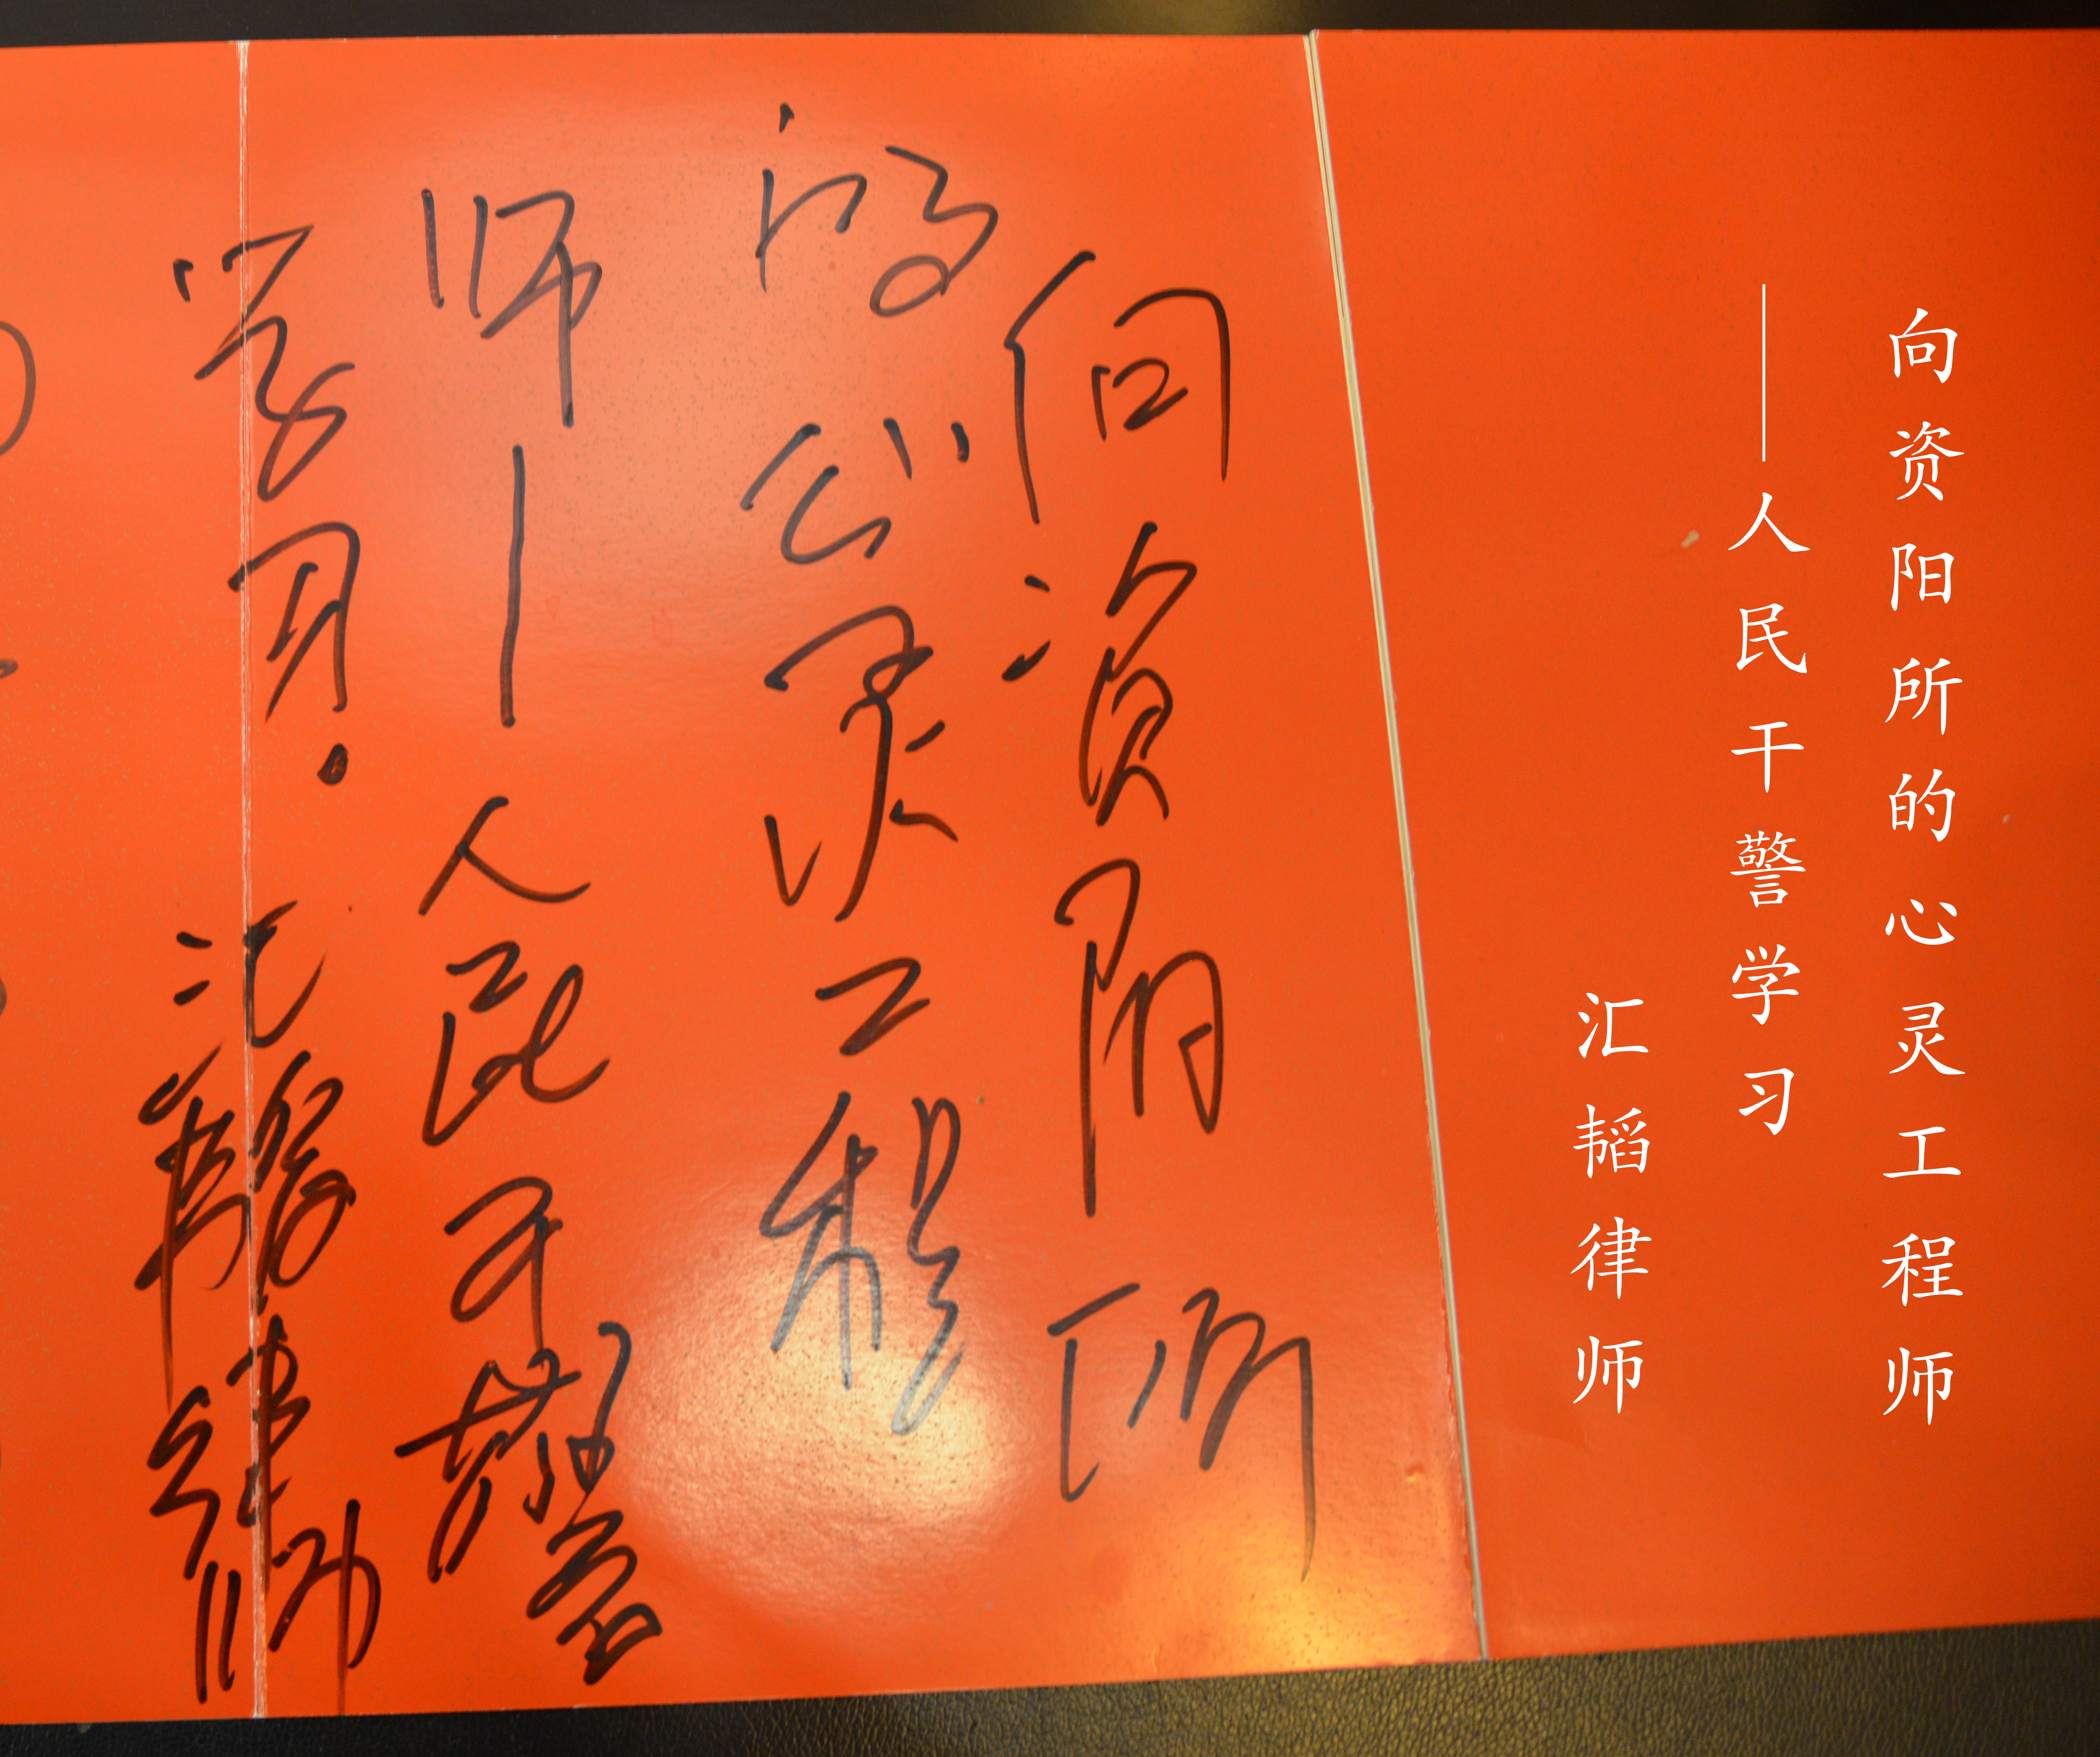 向资阳所的心灵工程师
——人民干警学习
汇韬律师
向资阳所
的心灵工程
师—人民干警
学习.汇韬律师